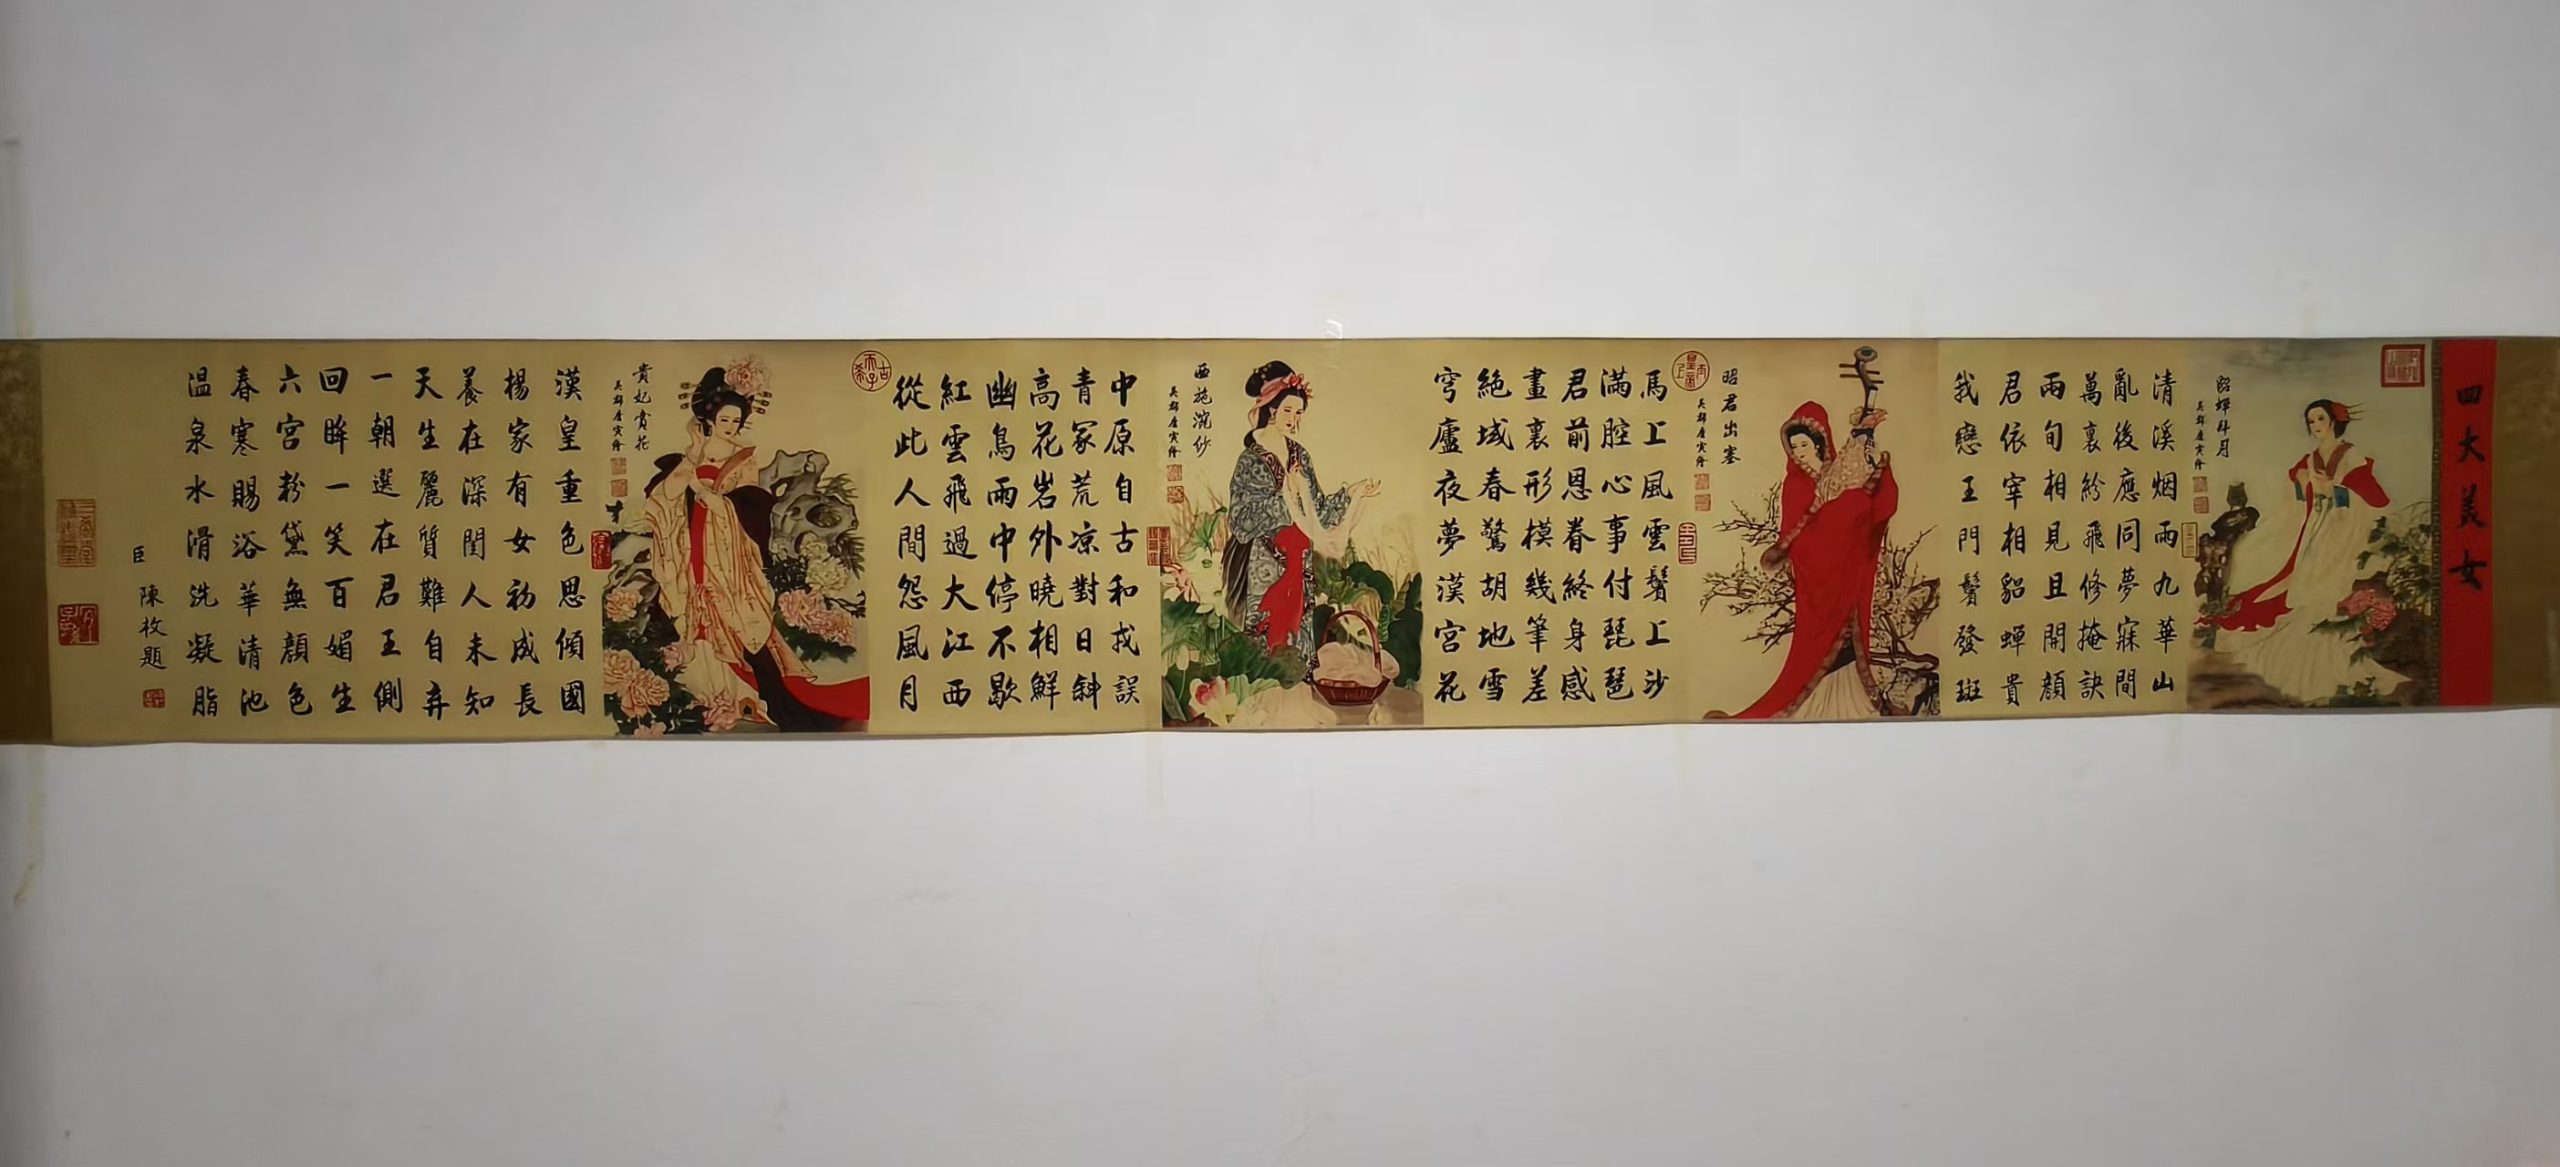 四大美女
貂蟬拜月
吳郡唐寅繪
清溪烟雨九華山
亂後應同夢寐間
萬裏紛飛修掩訣
兩旬相見且開顔
君依宰相貂蟬貴
我戀王門鬢發斑
昭君出塞
吳郡唐寅繪
馬上風雲鬢上沙
滿腔心事付琵琶
君前恩眷終身感
畫裏形模幾筆差
絶域春驚胡地雪
穹廬夜夢漢宮花
西施浣紗
吳郡唐寅繪
中原自古和戎誤
青冢荒凉對日斜
高花岩外曉相鮮
幽鳥雨中停不歇
紅雲飛過大江西
從此人間怨風月
貴妃賞花
吳郡唐寅繪
漢皇重色思傾國
楊家有女初成長
養在深閨人未知
天生麗質難自弃
一朝選在君王側
回眸一笑百媚生
六宮粉黛無顔色
春寒賜浴華清池
温泉水滑洗凝脂
臣
陳枚題